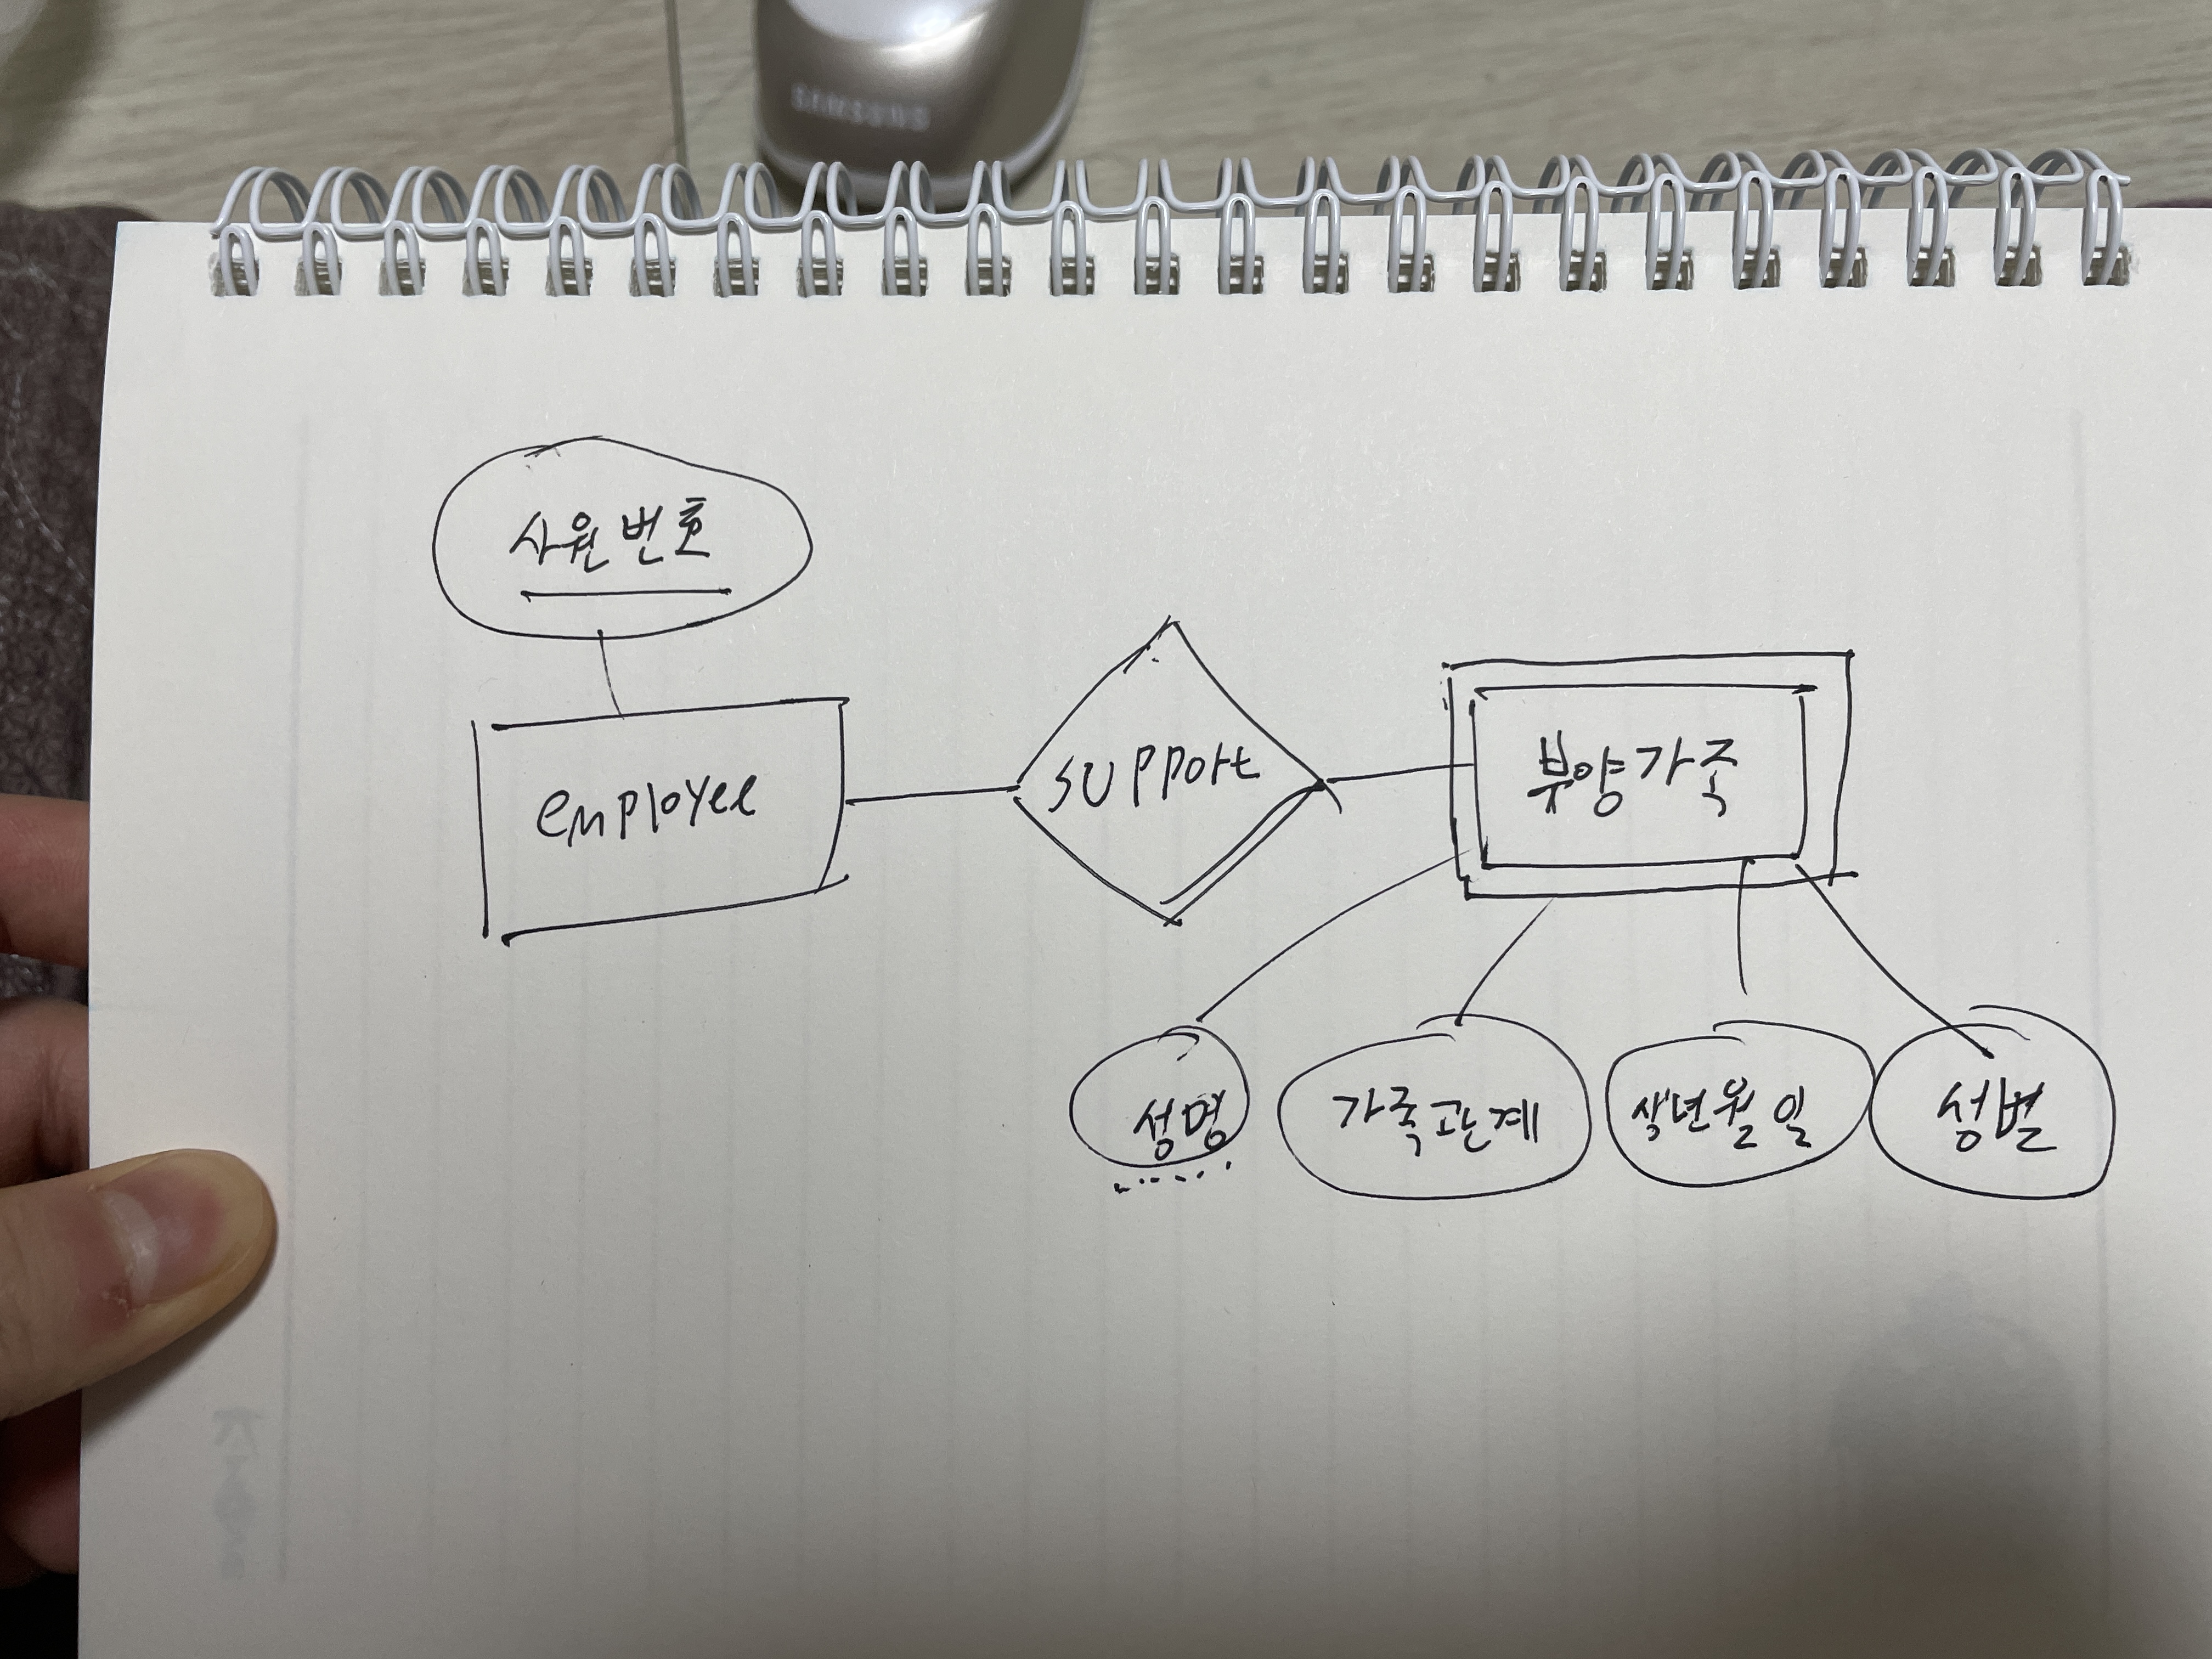 SAMSUNG
사원번호
employee
support
부양가족
성명
가족관계
생년월일
성별